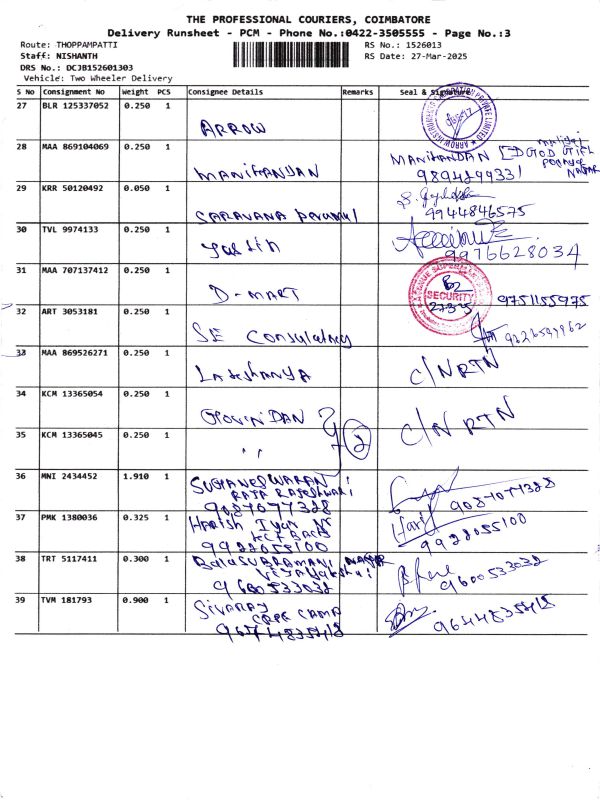 THE PROFESSIONAL COURIERS, COIMBATORE
Delivery Runsheet - PCM - Phone No.:0422-3505555 - Page No.:3
Route: THOPPAMPATTI RS No.: 1526013
Staff: NISHANTH RS Date: 27-Mar-2025
DRS No.: DCJB152601303
Vehicle: Two Wheeler Delivery
S No Consignment No Weight PCS Consignee Details Remarks Seal & Signature
27 BLR 125337052 0.250 1
ARROW
28 MAA 869104069 0.250 1
MANIKANDAN MANIKANDAN GOD GIFT
NAGAR
29 KRR 50120492 0.050 1
SARAVANA Perumal 9944846575
30 TVL 9974133 0.250 1
9976628034
31 MAA 707137412 0.250 1
D-MART SECURITY 9751155975
32 ART 3053181 0.250 1
SE Consultancy
33 MAA 869526271 0.250 1
LAKSHANYA C/N RTN
34 KCM 13365054 0.250 1
GOVINDAN C/N RTN
35 KCM 13365045 0.250 1
" 2
36 MNI 2434452 1.910 1
SUGANESWARAN
RAJA RAJESHWARI
9087077328 9087077328
37 PMK 1380036 0.325 1
Harish Iyan
9922055100 9922055100
38 TRT 5117411 0.300 1
BALASUBRAMANI NAGAR
9600533032 9600533032
39 TVM 181793 0.900 1
SIVARAJ
CRPF CAMP
9644835418 9644835418